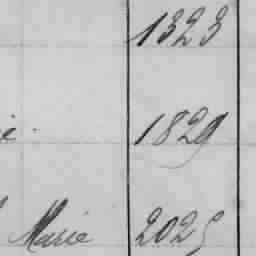 1323
1829
Marie 2025